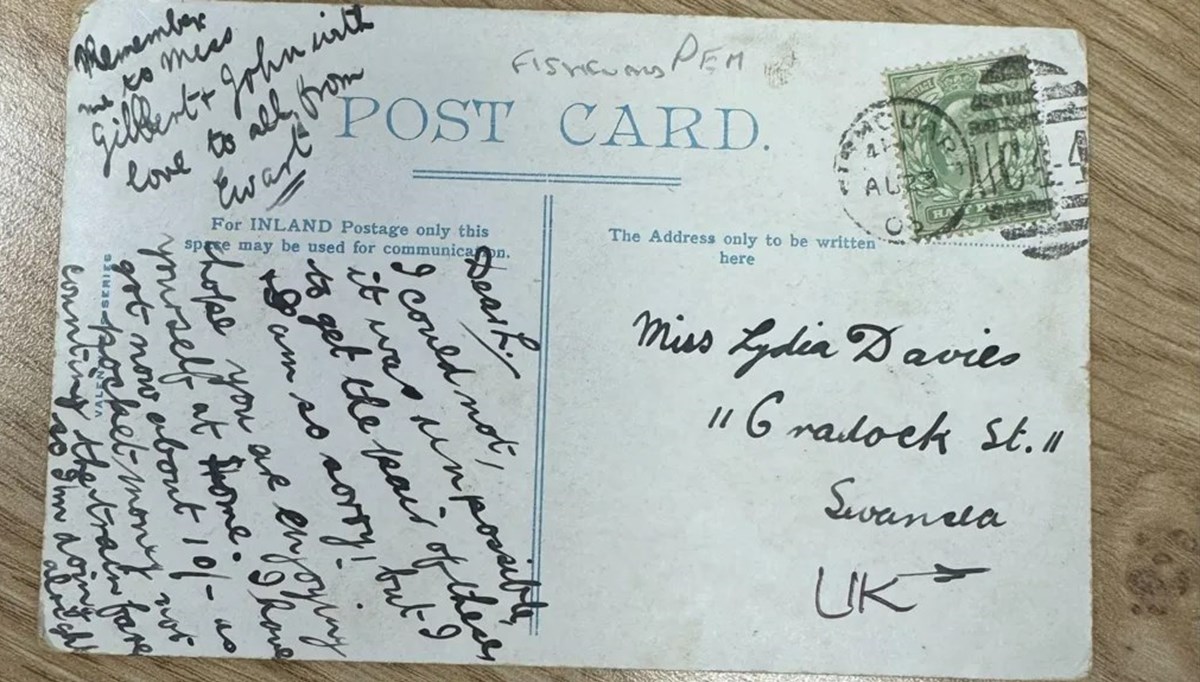 Remember
me to Miss
Gilbert + John with
love to all from
Ewart
PEM
POST CARD.
For INLAND Postage only this
space may be used for communication.
The Address only to be written
here
VALEN SERIES
HALF PENNY
AU 23
Dear L.,
I could not,
it was unpossible,
to get the pair of these
I am so sorry! but I
hope you are enjoying
yourself at Home. I have
got now about 10/- as
pocket-money not
counting the train fare
so I'm doing
alright
Miss Lydia Davies
"Cradock St."
Swansea
UK